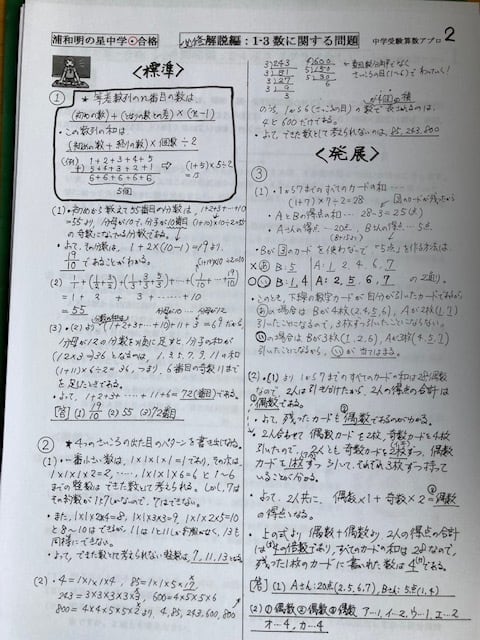 浦和明の星中学・合格
必修解説編:1-3 数に関する問題
中学受験算数アプロ 2
<標準>
①
★ 等差数列のn番目の数は
(初めの数)+(となりの数との差)×(n-1)
・この数列の和は
(初めの数+終りの数)×個数÷2
(例) 1+2+3+4+5
+) 5+4+3+2+1
6+6+6+6+6
5個
⇒ (1+5)×5÷2
=15
(1)・初めから数えて55番目の分数は、1+2+3+…+10
=55より、分母が10で、
の奇数になっている分数である。
・よって、その分数は、1+2×(10-1)=19より、
19/10 であることがわかる。
(2) 1/1+(1/2+3/2)+(1/3+3/3+5/3)+…+(1/10+…+19/10)
= 1 + 2 + 3 + …… + 10
= 55
(3)・(2)より、(1+2+3+…+10)+11+3=69だから、
分母が12の分数を3に足すと、分子の和が
(12×3=)36となるのは、1,3,5,7,9,11の和
(1+11)×6÷2=36、つまり、6番目の奇数11まで
を足したときである。
・よって、1+2+3+…+11+6=72(番目)である。
[答] (1) 19/10 (2) 55 (3) 72番目
② ★4つのさいころの出た目のパターンを書き出してみる。
(1)・一番小さい数は、1×1×1×1=1であり、その次は、
1×1×1×2=2, ……, 1×1×1×6=6と1〜6
までの整数はできた数として考えられる。しかし、7は
その約数が1と7しかないので、7はできない。
・また、1×1×2×4=8, 1×1×3×3=9, 1×1×2×5=10
と8〜10はできるが、11は1と11しか約数がなく、13も
同様にできない。
・よって、できた数として考えられない整数は7,11,13となる。
(2)・4=1×1×1×4, 85=1×1×5×17
243=3×3×3×3×3, 600=4×5×5×6
800=4×4×5×5×2より、4,85,243,600,800
3)243
3)81
3)27
3)9
3
5)600
5)150
5)30
6
のうち、1から6(さいころの目)の数で表されるのは、
4と600だけである。
・よって、できた数として考えられないのは、85,243,800
<発展>
③
(1)・1から7までのすべてのカードの和…
(1+7)×7÷2=28
・AとBの得点の和… 28-3=25(点)
Aさんの得点…20点、Bさんの得点…5点
・Bが③のカードを使わないで「5点」を作る方法は、
×あ B:5 | A:1,2,4,6,7
○い B:1,4 | A:2,5,6,7 の2通り。
・このとき、下線の数字カードが自分が引いたカードであるから
あの場合はBが4枚(2,4,5,6)、Aが2枚(1,7)
引いたことになるので、3枚ずつ引いたことにならない。
いの場合はBが3枚(1,2,6)、Aが3枚(4,5,7)
引いたことになるから、いがあてはまる。
(2)・(1)より1から7までのすべてのカードの和は28(偶数)
なので、
偶数である。
・よって、残ったカードも偶数であるのがわかる。
・2人合わせて偶数カードを2枚、奇数カードを4枚
引いたので、2人とも奇数カードを2枚ずつ、偶数
カードを1枚ずつ引いて、それぞれ3枚ずつ持って
いることが分かる。
・よって、2人共に、偶数×1+奇数×2=偶数
の得点になる。
・上の式より偶数+偶数より、2人の得点の合計
は4の倍数であり、すべてのカードの和は28なので、
残った1枚のカードに書いた数は4である。
[答] (1) Aさん:20点(2,5,6,7), Bさん:5点(1,4)
(2) ①偶数 ②偶数 ③偶数 ア…1, イ…2, ウ…1, エ…2
オ…4, カ…4